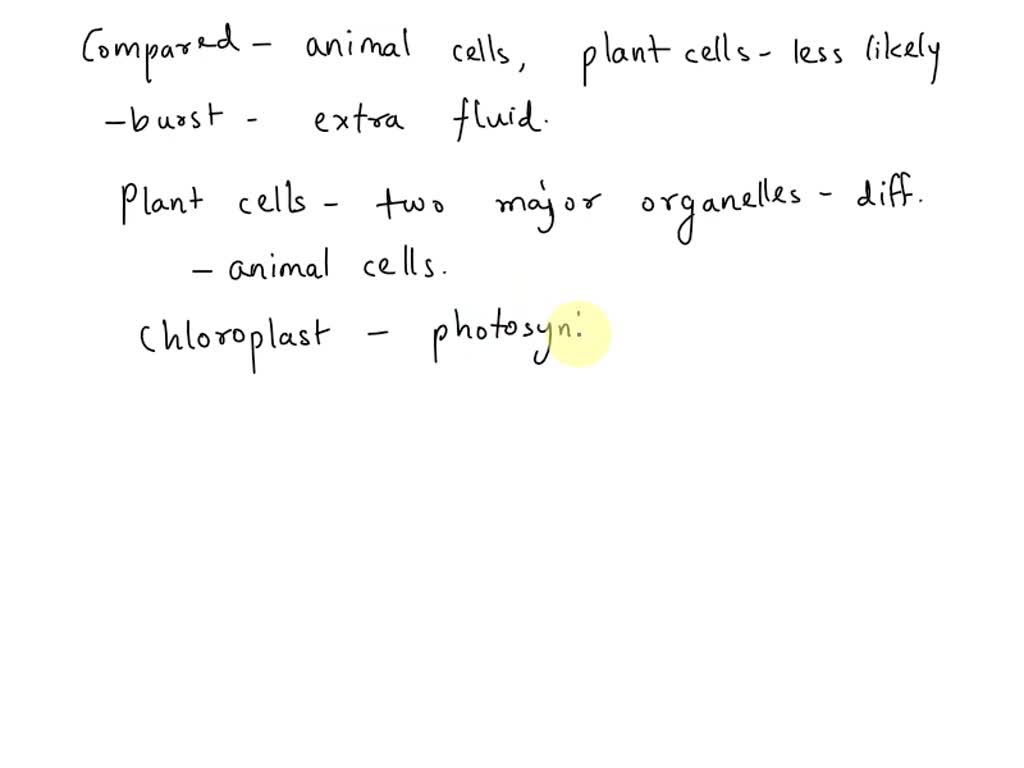 Compared - animal cells, plant cells - less likely
- burst - extra fluid.
Plant cells - two major organelles - diff.
- animal cells.
Chloroplast - photosyn